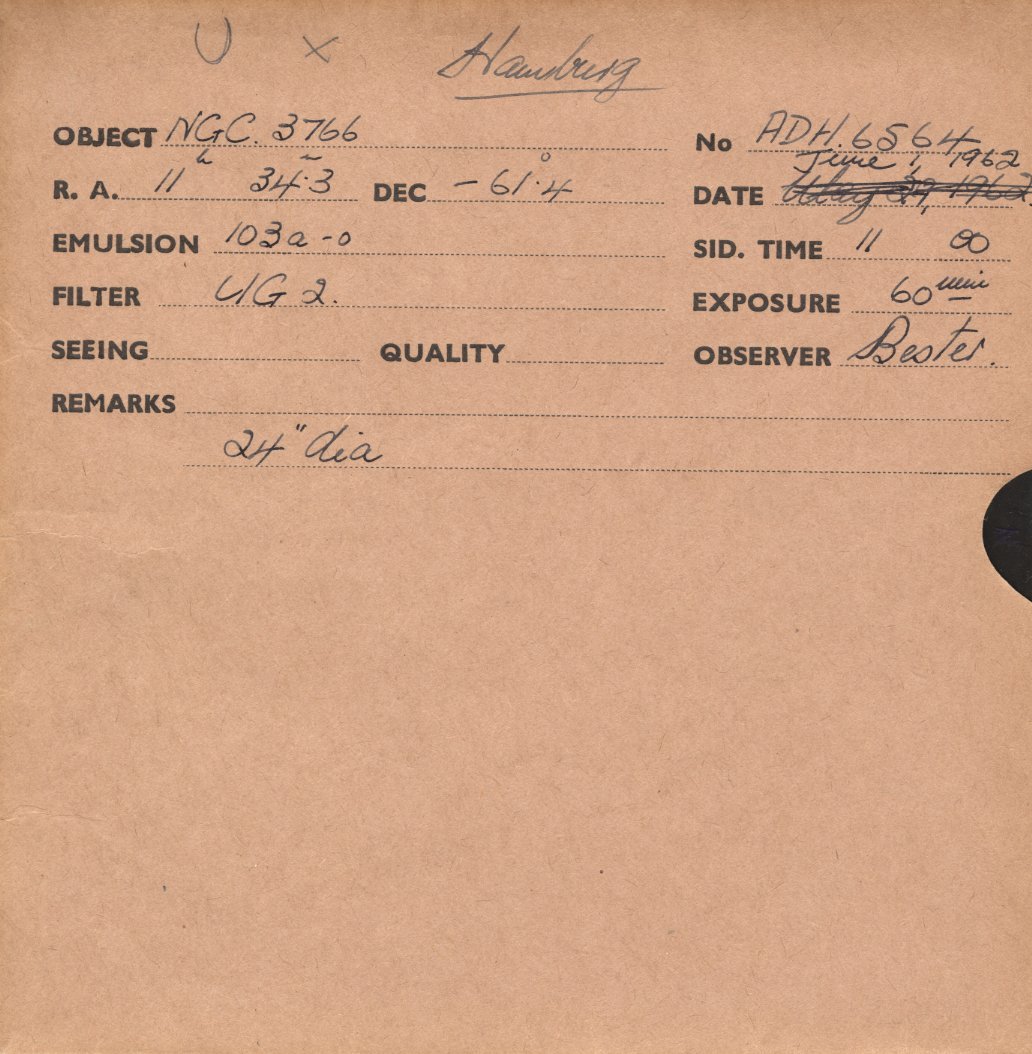 U x Hamburg
OBJECT NGC. 3766 No ADH. 6564
June 1, 1962
R. A. 11h 34.3m DEC -61.4° DATE May 29, 1962.
EMULSION 103a-o SID. TIME 11 00
FILTER UG 2. EXPOSURE 60 min
SEEING QUALITY OBSERVER Bester.
REMARKS
24" dia